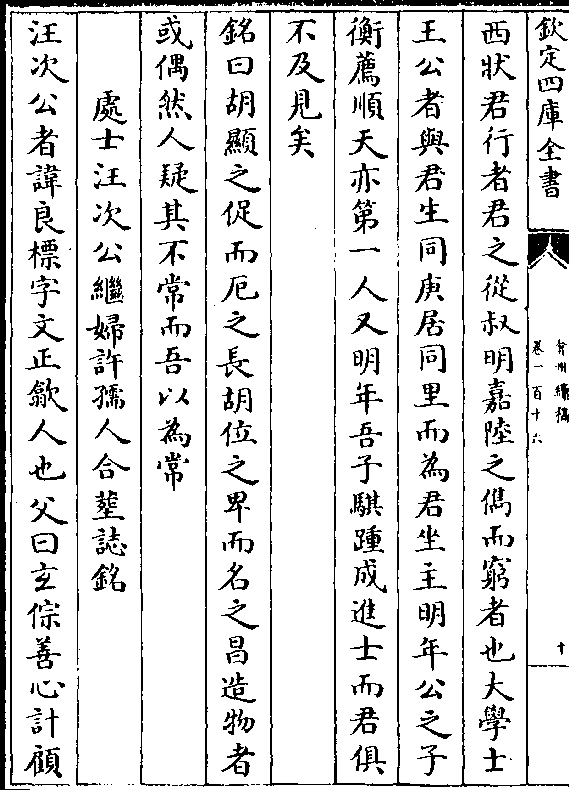 欽定四庫全書
弇州續稿
卷一百十六
十
西狀君行者君之從叔明嘉陸之儁而窮者也大學士
王公者與君生同庚居同里而為君坐主明年公之子
衡薦順天亦第一人又明年吾子騏踵成進士而君俱
不及見矣
銘曰胡顯之促而厄之長胡位之卑而名之昌造物者
或偶然人疑其不常而吾以為常
處士汪次公繼婦許孺人合塟誌銘
汪次公者諱良標字文正歙人也父曰玄倧善心計顧